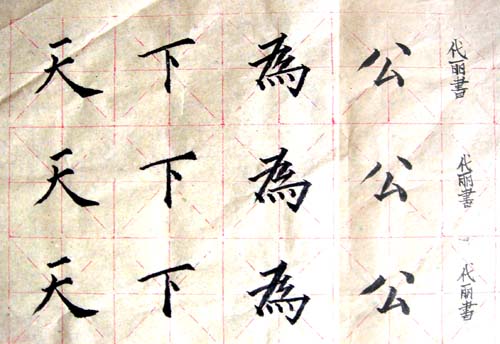 天下為公 代丽書
天下為公 代丽書
天下為公 代丽書